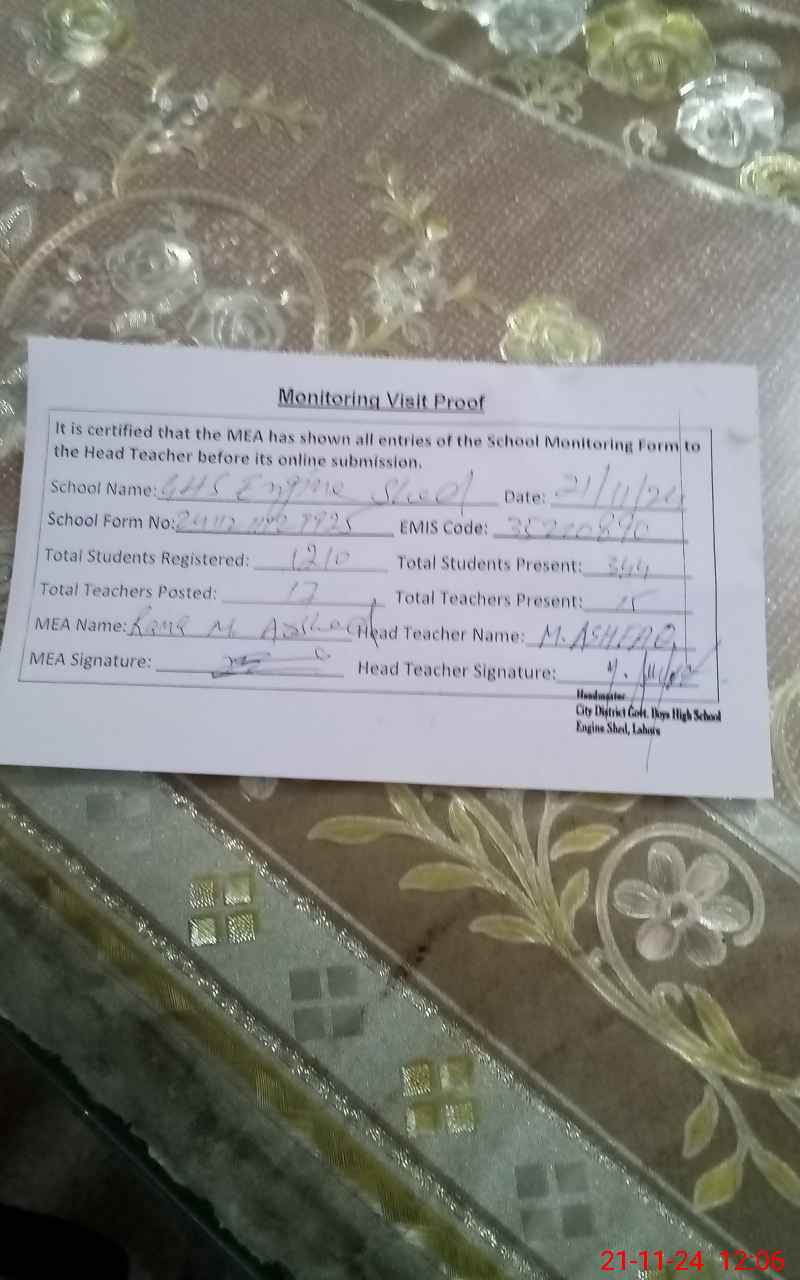 Monitoring Visit Proof
It is certified that the MEA has shown all entries of the School Monitoring Form to
the Head Teacher before its online submission.
School Name: GHS Engine Shed Date: 21/11/24
School Form No: EMIS Code: 35220890
Total Students Registered: 1210 Total Students Present: 344
Total Teachers Posted: 17 Total Teachers Present: 15
MEA Name: Rana M Head Teacher Name: M. ASHFAQ
MEA Signature: Head Teacher Signature:
Headmaster
City District Govt. Boys High School
Engine Shed, Lahore
21-11-24 12:06